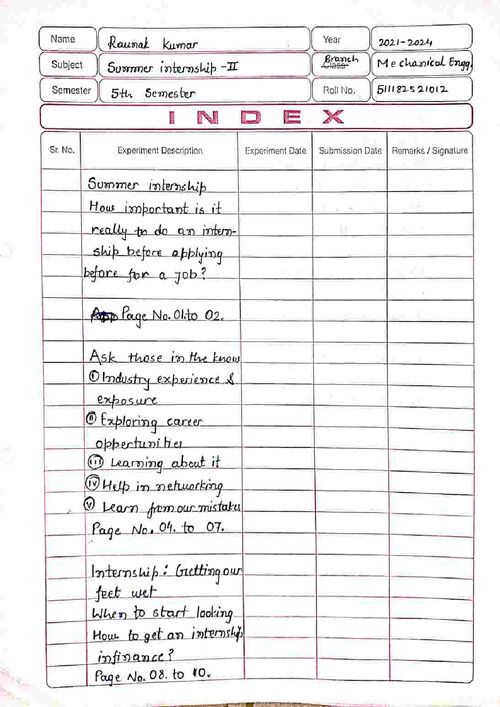 Name Raunak Kumar Year 2021-2024
Subject Summer internship-II Branch Class Mechanical Engg.
Semester 5th Semester Roll No. 511182521012
INDEX
Sr. No. Experiment Description Experiment Date Submission Date Remarks / Signature
Summer internship
How important is it
really to do an intern-
ship before applying
before for a job?
Page No. 01. to 02.
Ask those in the know
(i) Industry experience &
exposure
(ii) Exploring career
oppertunities
(iii) Learning about it
(iv) Help in networking
(v) Learn from our mistakes
Page No. 04. to 07.
Internship: Getting our
feet wet
When to start looking
How to get an internship
infinance?
Page No. 08. to 10.